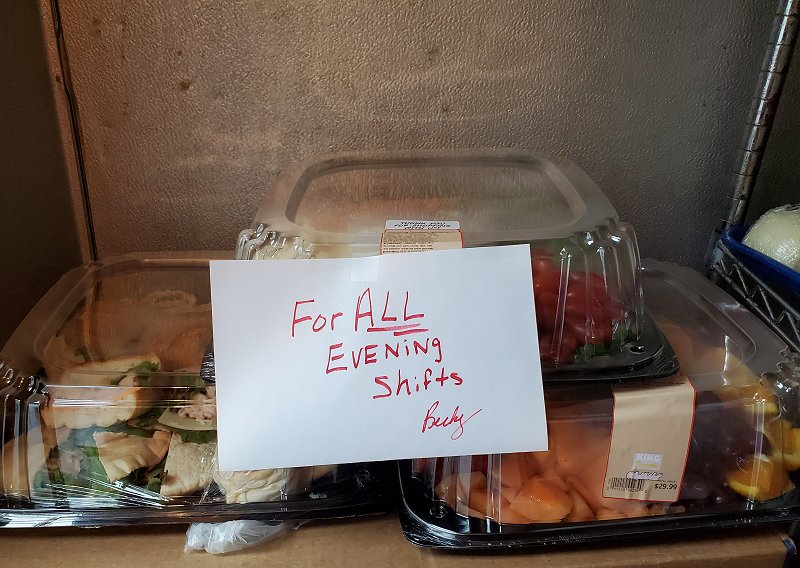 THANK YOU
For ALL
EVENING
Shifts
Becky
KING
$29.99